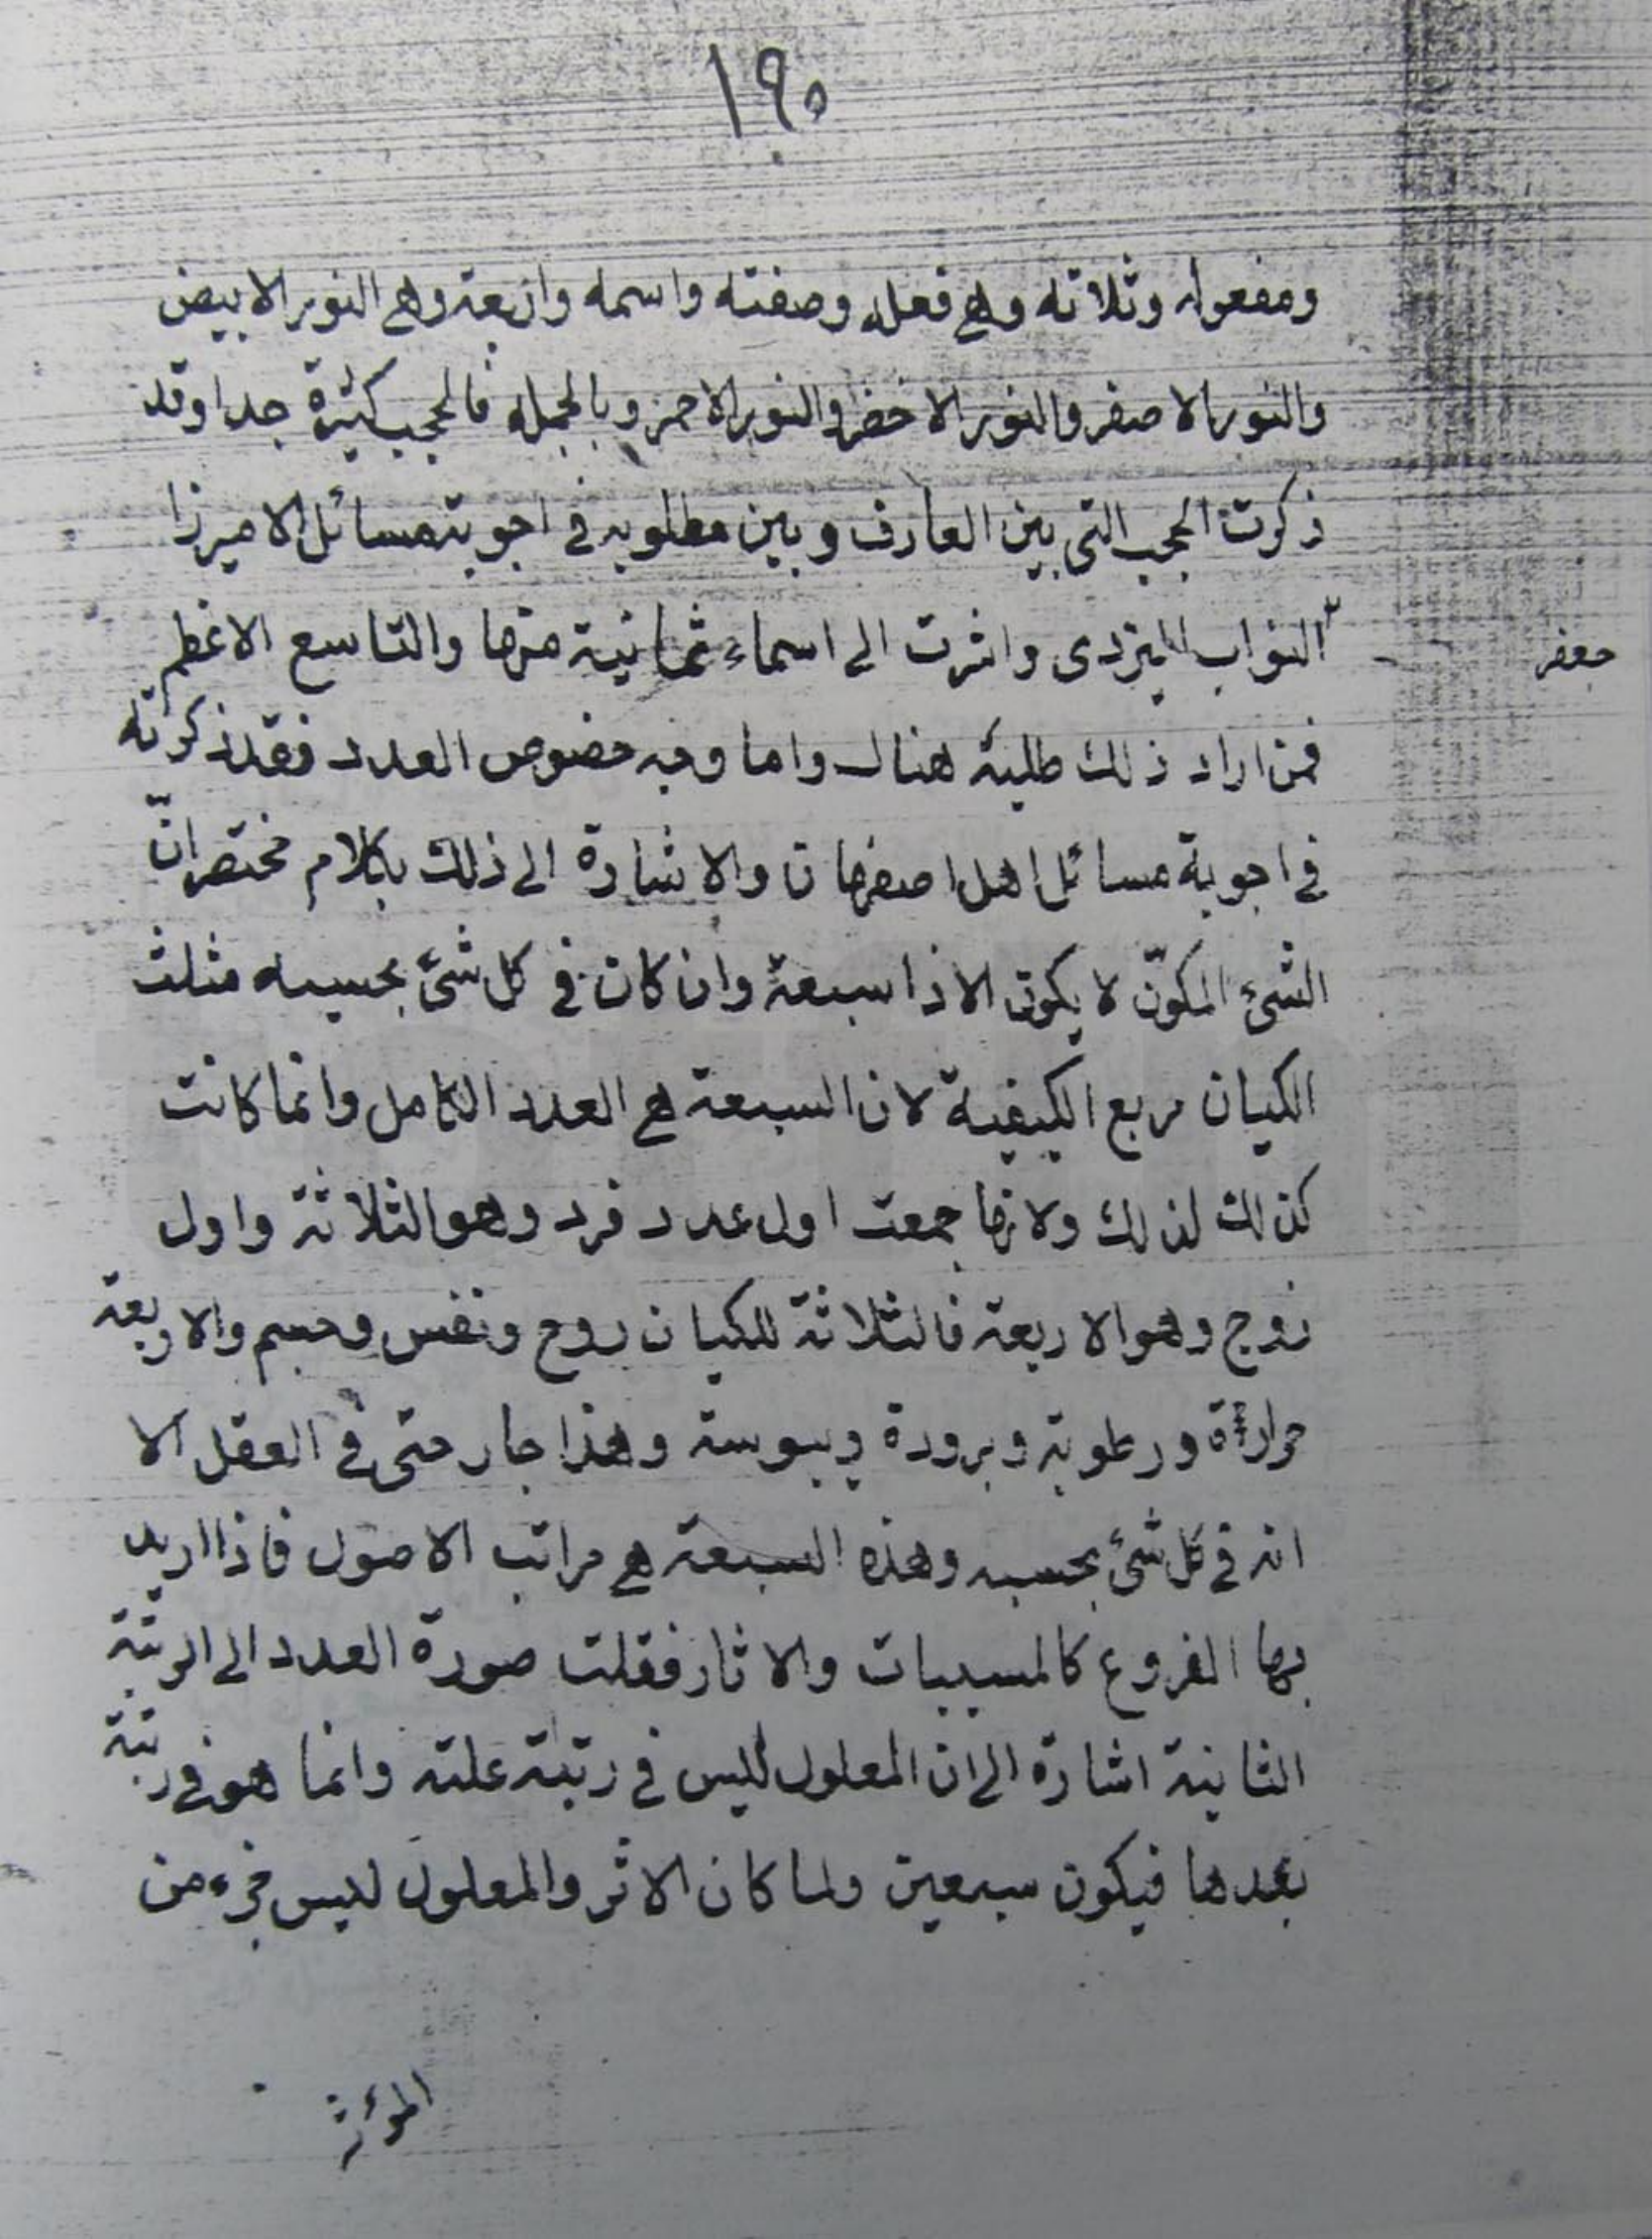 ١٩٠
ومفعوله وثلاثه وهي فعله وصفته واسمه واربعة وهي النور الابيض
والنور الاصفر والنور الاخضر والنور الاحمر وبالجمله فالحجب كثيرة جدا وقد
ذكرت الحجب التى بين العارف وبين مطلوبه في اجوبة مسائل الاميرزا
جعفر
النواب اليزدى واشرت الى اسماء ثمانية منها والتاسع الاعظم
فمن اراد ذلك طلبه هناك واما وجه خصوص العدد فقد ذكرته
في اجوبة مسائل اهل اصفهان والاشارة الى ذلك بكلام مختصر انّ
الشئ المكوّن لا يكون الا ذا سبعة وان كان في كل شئ بحسبه مثلث
الكيان مربع الكيفية لان السبعة هي العدد الكامل وانما كانت
كذلك لذلك ولانها جمعت اول عدد فرد وهو الثلاثة واول
زوج وهو الاربعة فالثلاثة للكيان روح ونفس وجسم والاربعة
حرارة ورطوبة وبرودة ويبوسة وهذا جار حتى في العقل الا
انه في كل شئ بحسبه وهذه السبعة هي مراتب الاصول فاذا اريد
بها الفروع كالمسببات والاثار فقلت صورة العدد الى الرتبة
الثانية اشارة الى ان المعلول ليس في رتبة علته وانما هو في رتبة
بعدها فيكون سبعين ولما كان الاثر والمعلول ليس جزء من
المؤثر